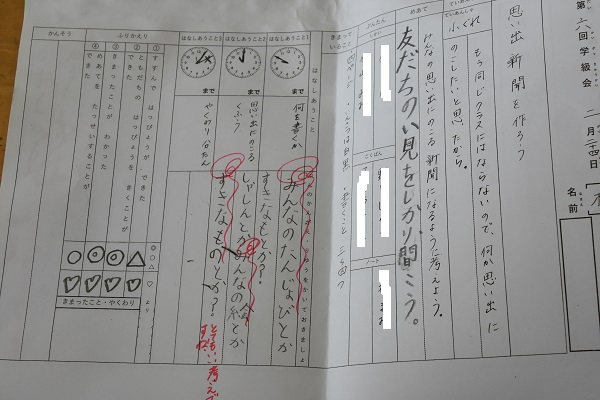 第六回学級会 二月二十四日
名前
思い出新聞を作ろう
ていあんしゃ
ふくれ
ていあんりゆう
もう同じクラスにはならないので、何か思い出に
のこしたいと思ったから。
めあて
みんなの思い出にのこる新聞になるように考えよう。
友だちのい見をしっかり聞こう。
しかい
こくばん
ノート
きまっていること
はなしあうこと
はなしあうこと1
まで
何を書くか
みんなのたんじょびとか
すきなもとか?
はなしあうこと2
まで
思い出にのこるくふう
しゃしんとかみんなの絵とか
はなしあうこと3
まで
やくわり分たん
すきなものとか?
とてもいい考えですね
ふりかえり
① すすんで はっぴょうが できた
② ともだちの はっぴょうを きくことが できた
③ きまったことが わかった
④ めあてを たっせいすることが できた
きまったこと・やくわり
かんそう